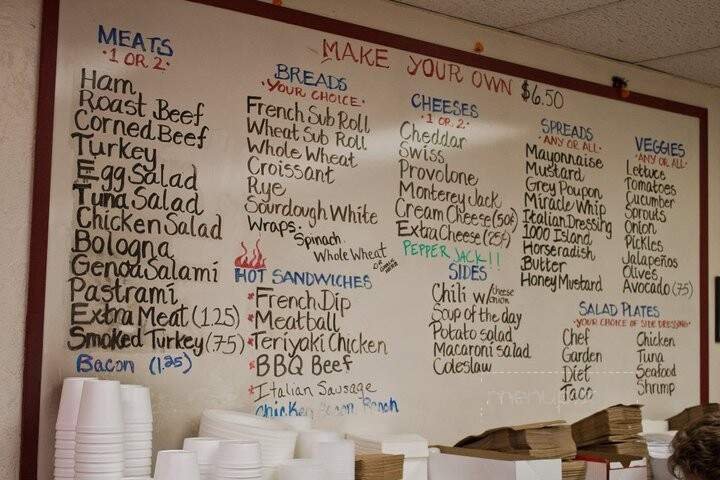 MAKE YOUR OWN $6.50
MEATS
• 1 OR 2 •
Ham
Roast Beef
Corned Beef
Turkey
Egg Salad
Tuna Salad
Chicken Salad
Bologna
Genoa Salami
Pastrami
Extra Meat (1.25)
Smoked Turkey (.75)
Bacon (1.25)
BREADS
• YOUR CHOICE •
French Sub Roll
Wheat Sub Roll
Whole Wheat
Croissant
Rye
Sourdough White
Wraps:
Spinach
Whole Wheat
HOT SANDWICHES
*French Dip
*Meatball
*Teriyaki Chicken
*BBQ Beef
*Italian Sausage
Chicken Bacon Ranch
CHEESES
• 1 OR 2 •
Cheddar
Swiss
Provolone
Monterey Jack
Cream Cheese (50¢)
Extra Cheese (25¢)
PEPPER JACK!!
SIDES
Chili w/ cheese onion
Soup of the day
Potato salad
Macaroni salad
Coleslaw
SPREADS
• ANY OR ALL •
Mayonnaise
Mustard
Grey Poupon
Miracle Whip
Italian Dressing
1000 Island
Horseradish
Butter
Honey Mustard
VEGGIES
• ANY OR ALL •
Lettuce
Tomatoes
Cucumber
Sprouts
Onion
Pickles
Jalapeños
Olives
Avocado (.75)
SALAD PLATES
• YOUR CHOICE OF SIDE DRESSING •
Chef
Garden
Diet
Taco
Chicken
Tuna
Seafood
Shrimp